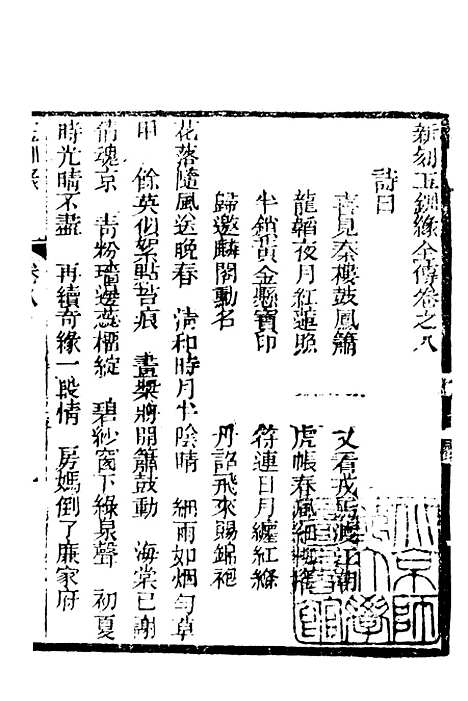 新刻玉釧緣全傳卷之八
詩曰
喜見秦樓鼓鳳簫　又看戎馬
龍韜夜月紅蓮照　虎帳春風細柳
半鎖黃金懸寶印　符連日月纏紅絛
歸邀麟閣動名　丹詔飛來賜錦袍
花落隨風送晚春　清和時月半陰晴　細雨如烟勻草
甲　餘英似絮點苔痕　畫槳將開簫鼓動　海棠已謝
倩魂京　青粉墻邊蕊榴綻　碧紗窗下綠泉聲　初夏
時光晴不盡　再續奇緣一段情　房媽倒了廉家府
玉釧緣　卷八